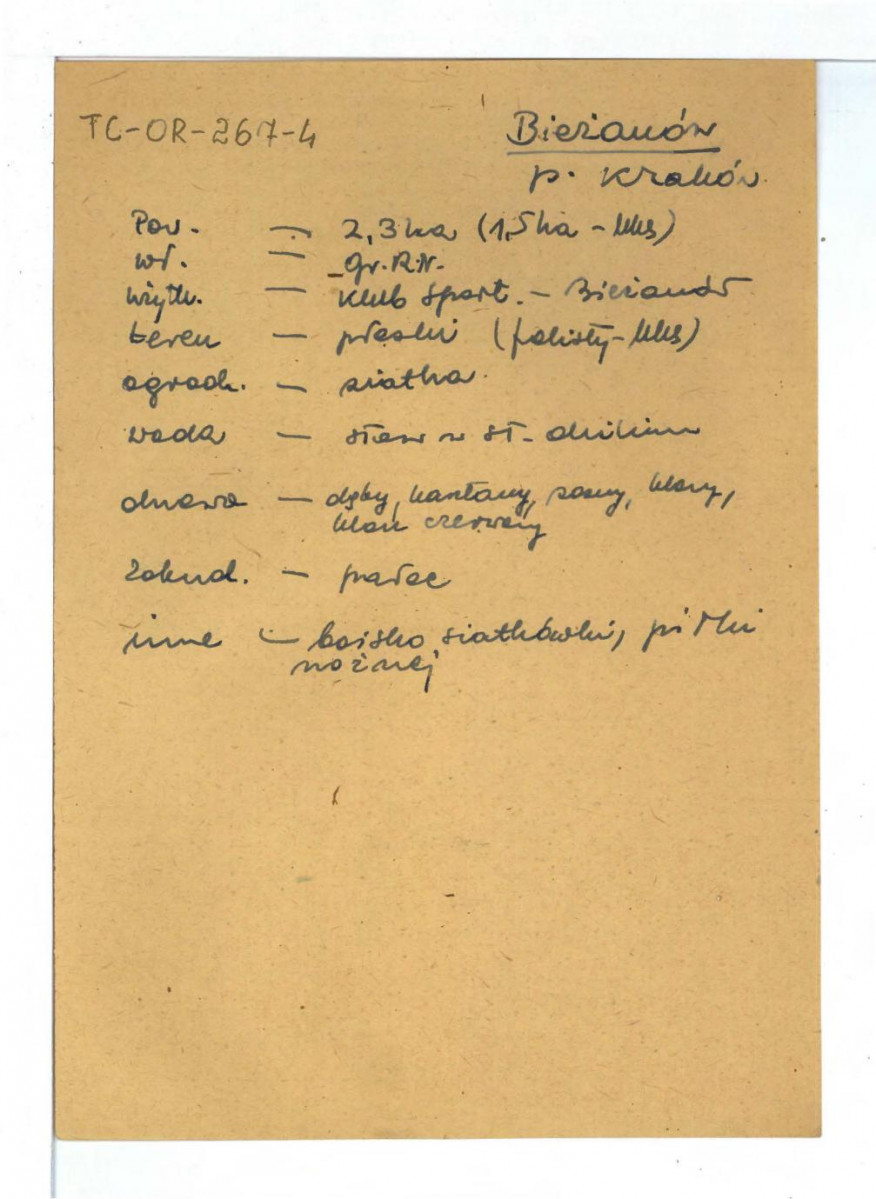 TC-OR-267-4
Bieżanów
p. Kraków
Pow. — 2,3 ha (1,5 ha - UKS)
wł. — Gr.R.N.
użytk. — Klub Sport. - Bieżanów
teren — płaski (falisty - UKS)
ogrodz. — siatka
woda — staw w st. dzikim
drzewa — dęby, kasztany, sosny, klony,
klon czerwony
Zabud. — pałac
inne — boisko siatkówki, piłki
nożnej